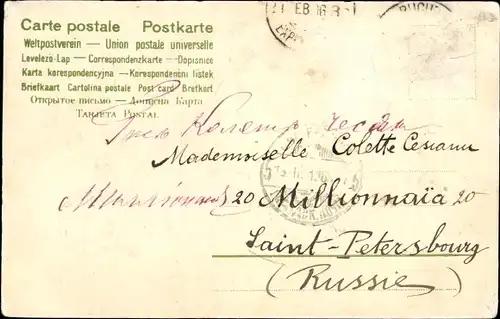 Carte postale Postkarte
Weltpostverein — Union postale universelle
Levelező-Lap — Correspondenzkarte — Dopisnice
Karta korespondencyjna — Korespondenční lístek
Briefkaart Cartolina postale Post card Brefkort
Открытое письмо — Дописна Карта
TARJETA POSTAL
Mademoiselle Colette Cesianu
20 Millionnaïa 20
Saint-Petersbourg
(Russie)